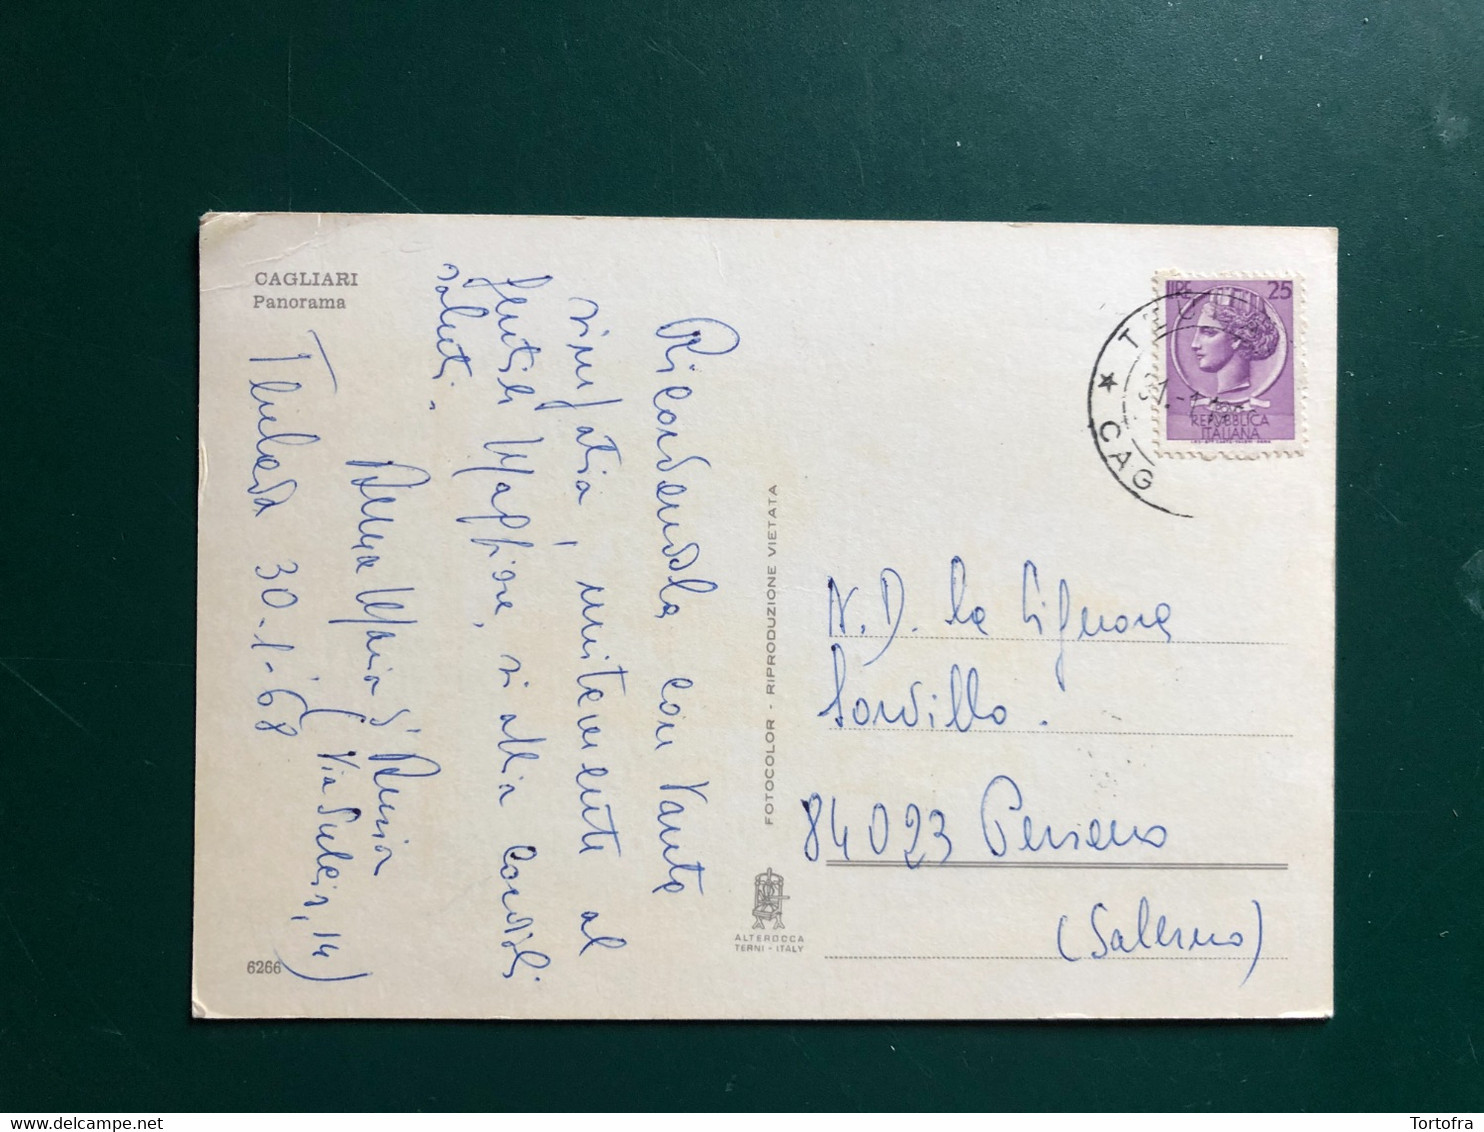 CAGLIARI
Panorama
Ricordandola con tanta
simpatia, unitamente al
gentile Maggiore, si abbia cordiali
saluti.
Anna Maria
(Via Sulcis, 14)
Teulada 30-1-'68
6266
FOTOCOLOR - RIPRODUZIONE VIETATA
ALTEROCCA
TERNI - ITALY
LIRE 25
REPVBBLICA
ITALIANA
CAG
N. D. la Signora
Sordillo.
84023 Persano
(Salerno)
Tortofra